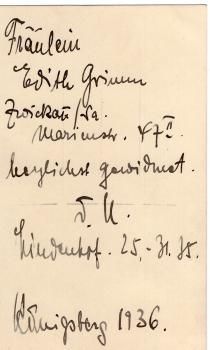 Fräulein
Edith Grimm
Zwickau /Sa.
Marienstr. 47II.
herzlichst gewidmet.
Lindenhof. 25.-31.35.
Königsberg 1936.